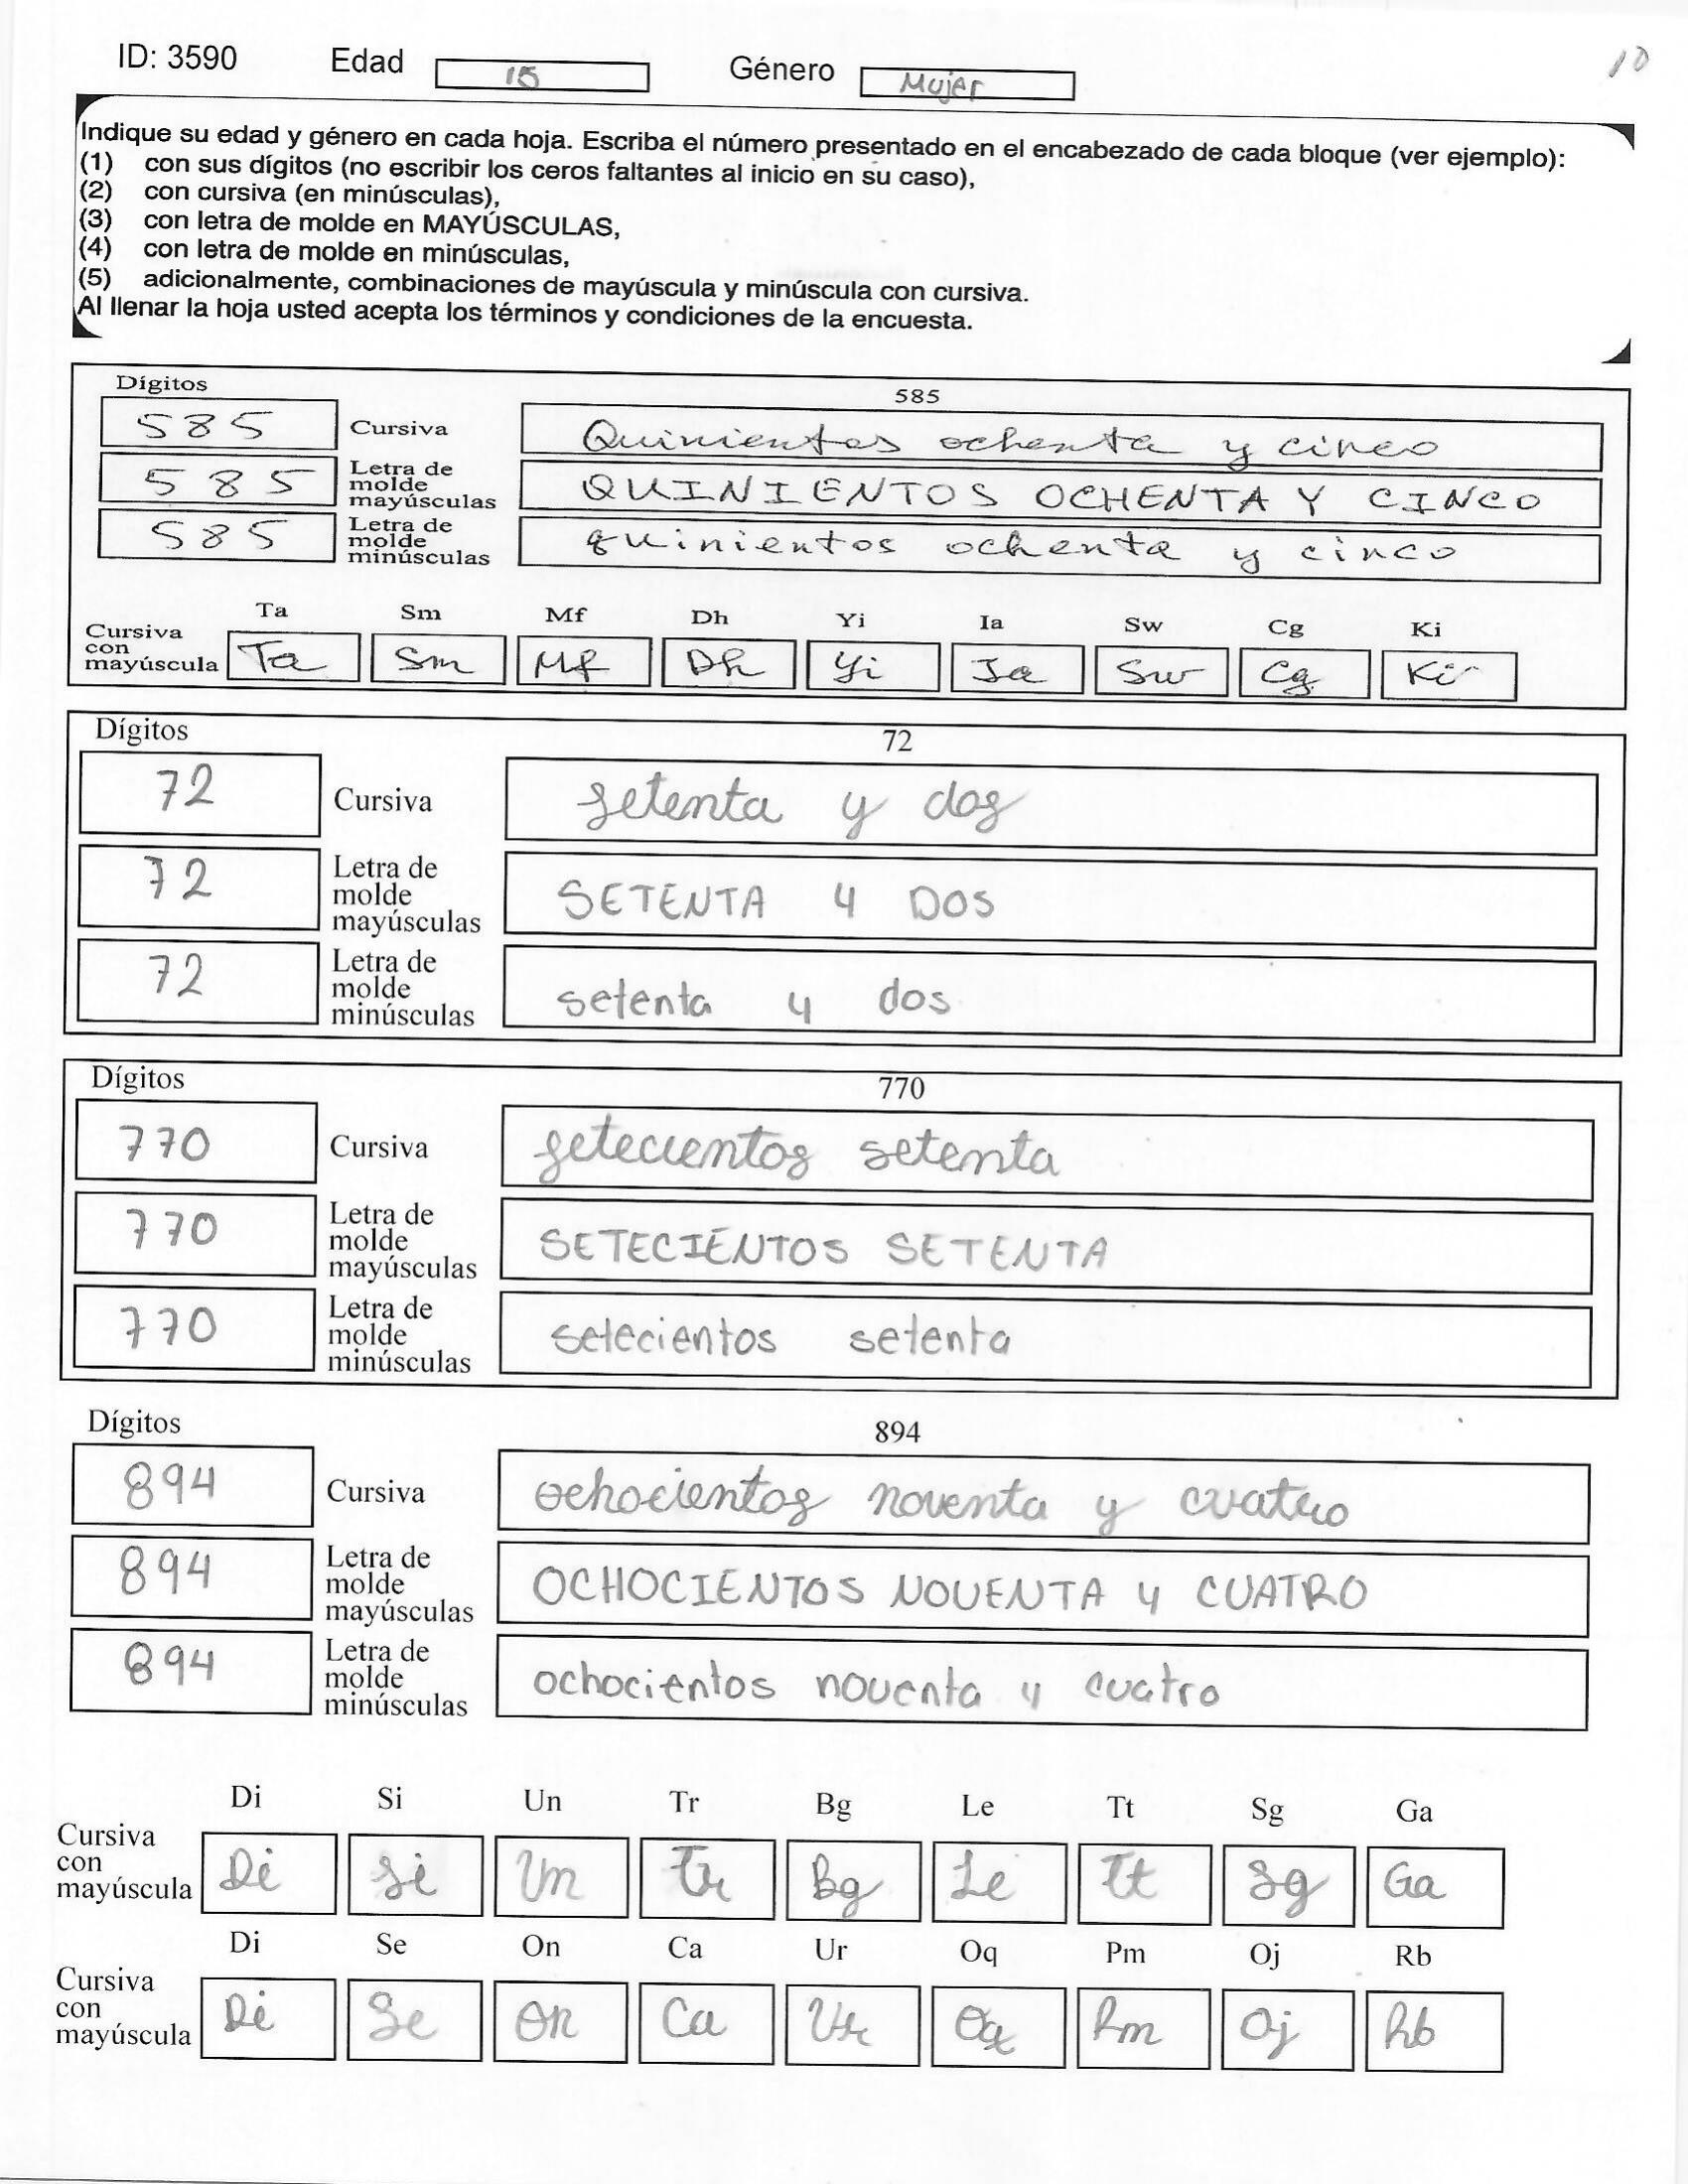 ID: 3590 Edad 15 Género Mujer 10
Indique su edad y género en cada hoja. Escriba el número presentado en el encabezado de cada bloque (ver ejemplo):
(1) con sus dígitos (no escribir los ceros faltantes al inicio en su caso),
(2) con cursiva (en minúsculas),
(3) con letra de molde en MAYÚSCULAS,
(4) con letra de molde en minúsculas,
(5) adicionalmente, combinaciones de mayúscula y minúscula con cursiva.
Al llenar la hoja usted acepta los términos y condiciones de la encuesta.
Dígitos 585
585 Cursiva Quinientos ochenta y cinco
585 Letra de molde mayúsculas QUINIENTOS OCHENTA Y CINCO
585 Letra de molde minúsculas quinientos ochenta y cinco
Ta Sm Mf Dh Yi Ia Sw Cg Ki
Cursiva con mayúscula Ta Sm Mf Dh Yi Ia Sw Cg Ki
Dígitos 72
72 Cursiva setenta y dos
72 Letra de molde mayúsculas SETENTA Y DOS
72 Letra de molde minúsculas setenta y dos
Dígitos 770
770 Cursiva setecientos setenta
770 Letra de molde mayúsculas SETECIENTOS SETENTA
770 Letra de molde minúsculas setecientos setenta
Dígitos 894
894 Cursiva ochocientos noventa y cuatro
894 Letra de molde mayúsculas OCHOCIENTOS NOVENTA Y CUATRO
894 Letra de molde minúsculas ochocientos noventa y cuatro
Di Si Un Tr Bg Le Tt Sg Ga
Cursiva con mayúscula Di Si Un Tr Bg Le Tt Sg Ga
Di Se On Ca Ur Oq Pm Oj Rb
Cursiva con mayúscula Di Se On Ca Ur Oq Pm Oj Rb